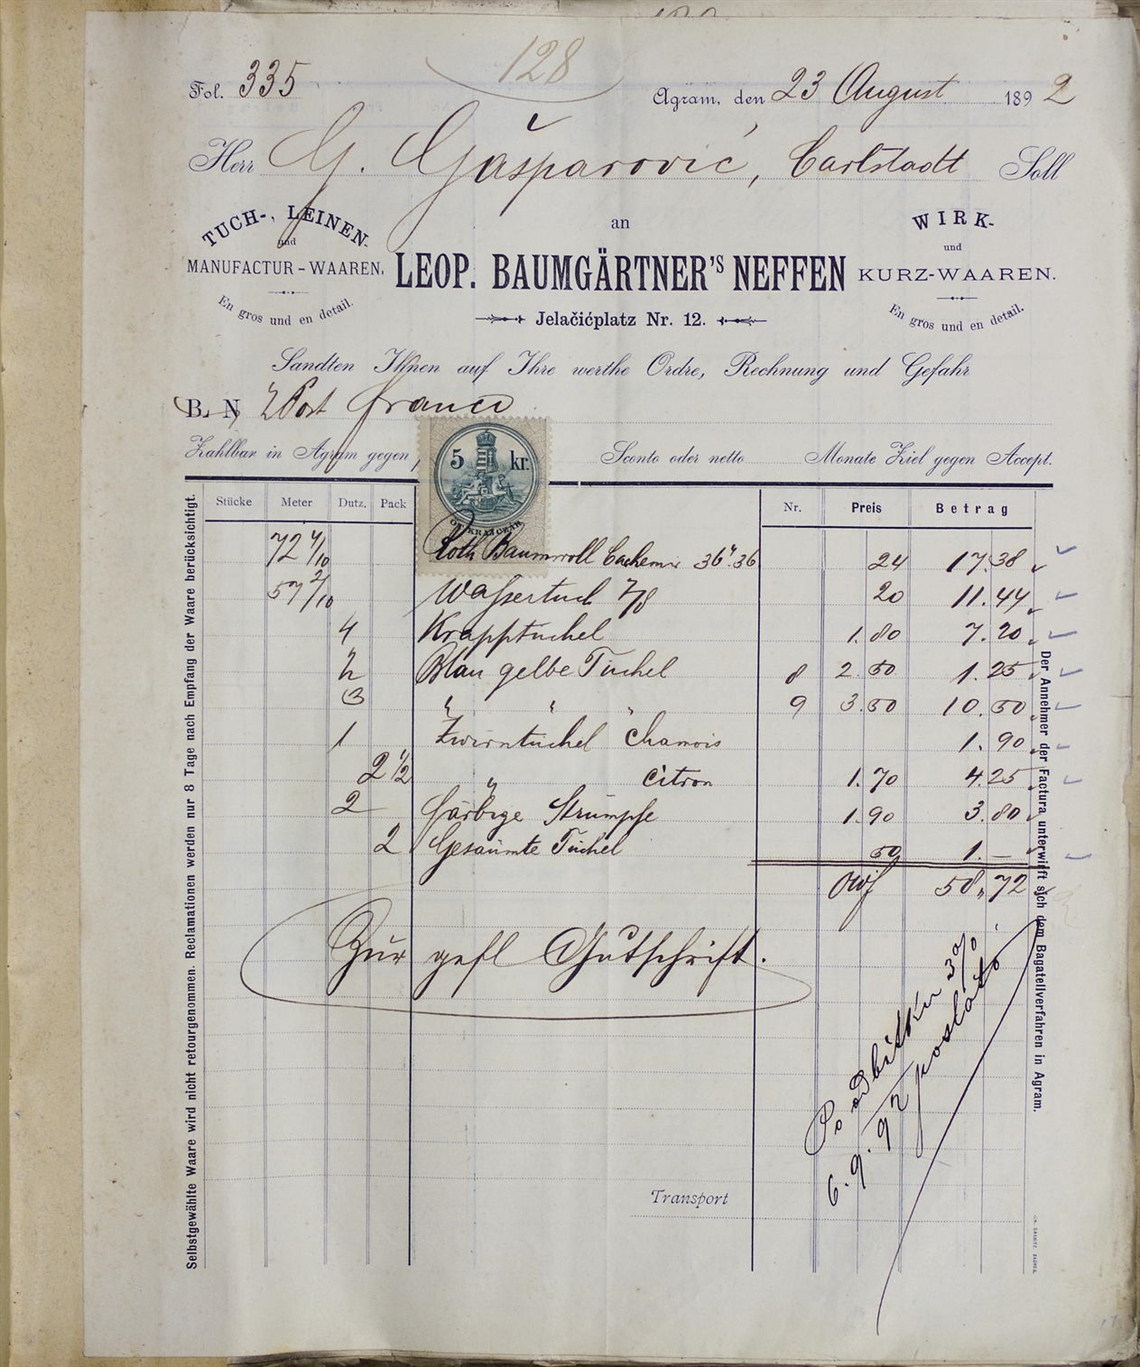 128
Fol. 335
Agram, den 23 August 1892
Herr G. Gašparović, Carlstadt Soll
an
TUCH-, LEINEN-
und
MANUFACTUR-WAAREN.
En gros und en detail.
LEOP. BAUMGÄRTNER'S NEFFEN
Jelačićplatz Nr. 12.
WIRK-
und
KURZ-WAAREN.
En gros und en detail.
Sandten Ihnen auf Ihre werthe Ordre, Rechnung und Gefahr
B. N. Post franco
Zahlbar in Agram gegen Sconto oder netto Monate Ziel gegen Accept.
5 kr.
Stücke Meter Dutz. Pack Nr. Preis Betrag
72 4/10 Roth Baumwoll Cachemir 36" 36 24 17.38
57 2/10 Wassertuch 7/8 20 11.44
4 Krapptüchel 1.80 7.20
1/2 Blau gelbe Tüchel 8 2.50 1.25
3 " " " 9 3.50 10.50
1 Zwirntüchel Chamois 1.90
2 1/2 " Citron 1.70 4.25
2 färbige Strümpfe 1.90 3.80
2 Gesäumte Tüchel 50 1.—
ÖWf 58.72
Zur gefl Gutschrift.
Po odbitku 3%
6.9.92 poslato
Transport
Selbstgewählte Waare wird nicht retourgenommen. Reclamationen werden nur 8 Tage nach Empfang der Waare berücksichtigt.
Der Annehmer der Factura unterwirft sich dem Bagatellverfahren in Agram.